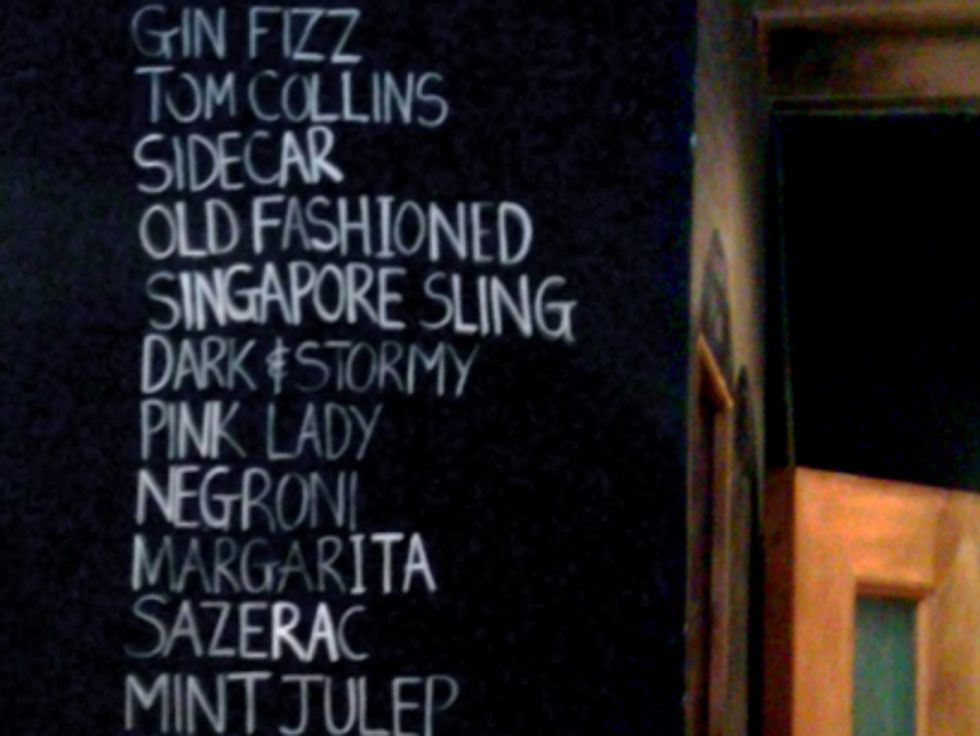 GIN FIZZ
TOM COLLINS
SIDECAR
OLD FASHIONED
SINGAPORE SLING
DARK & STORMY
PINK LADY
NEGRONI
MARGARITA
SAZERAC
MINT JULEP